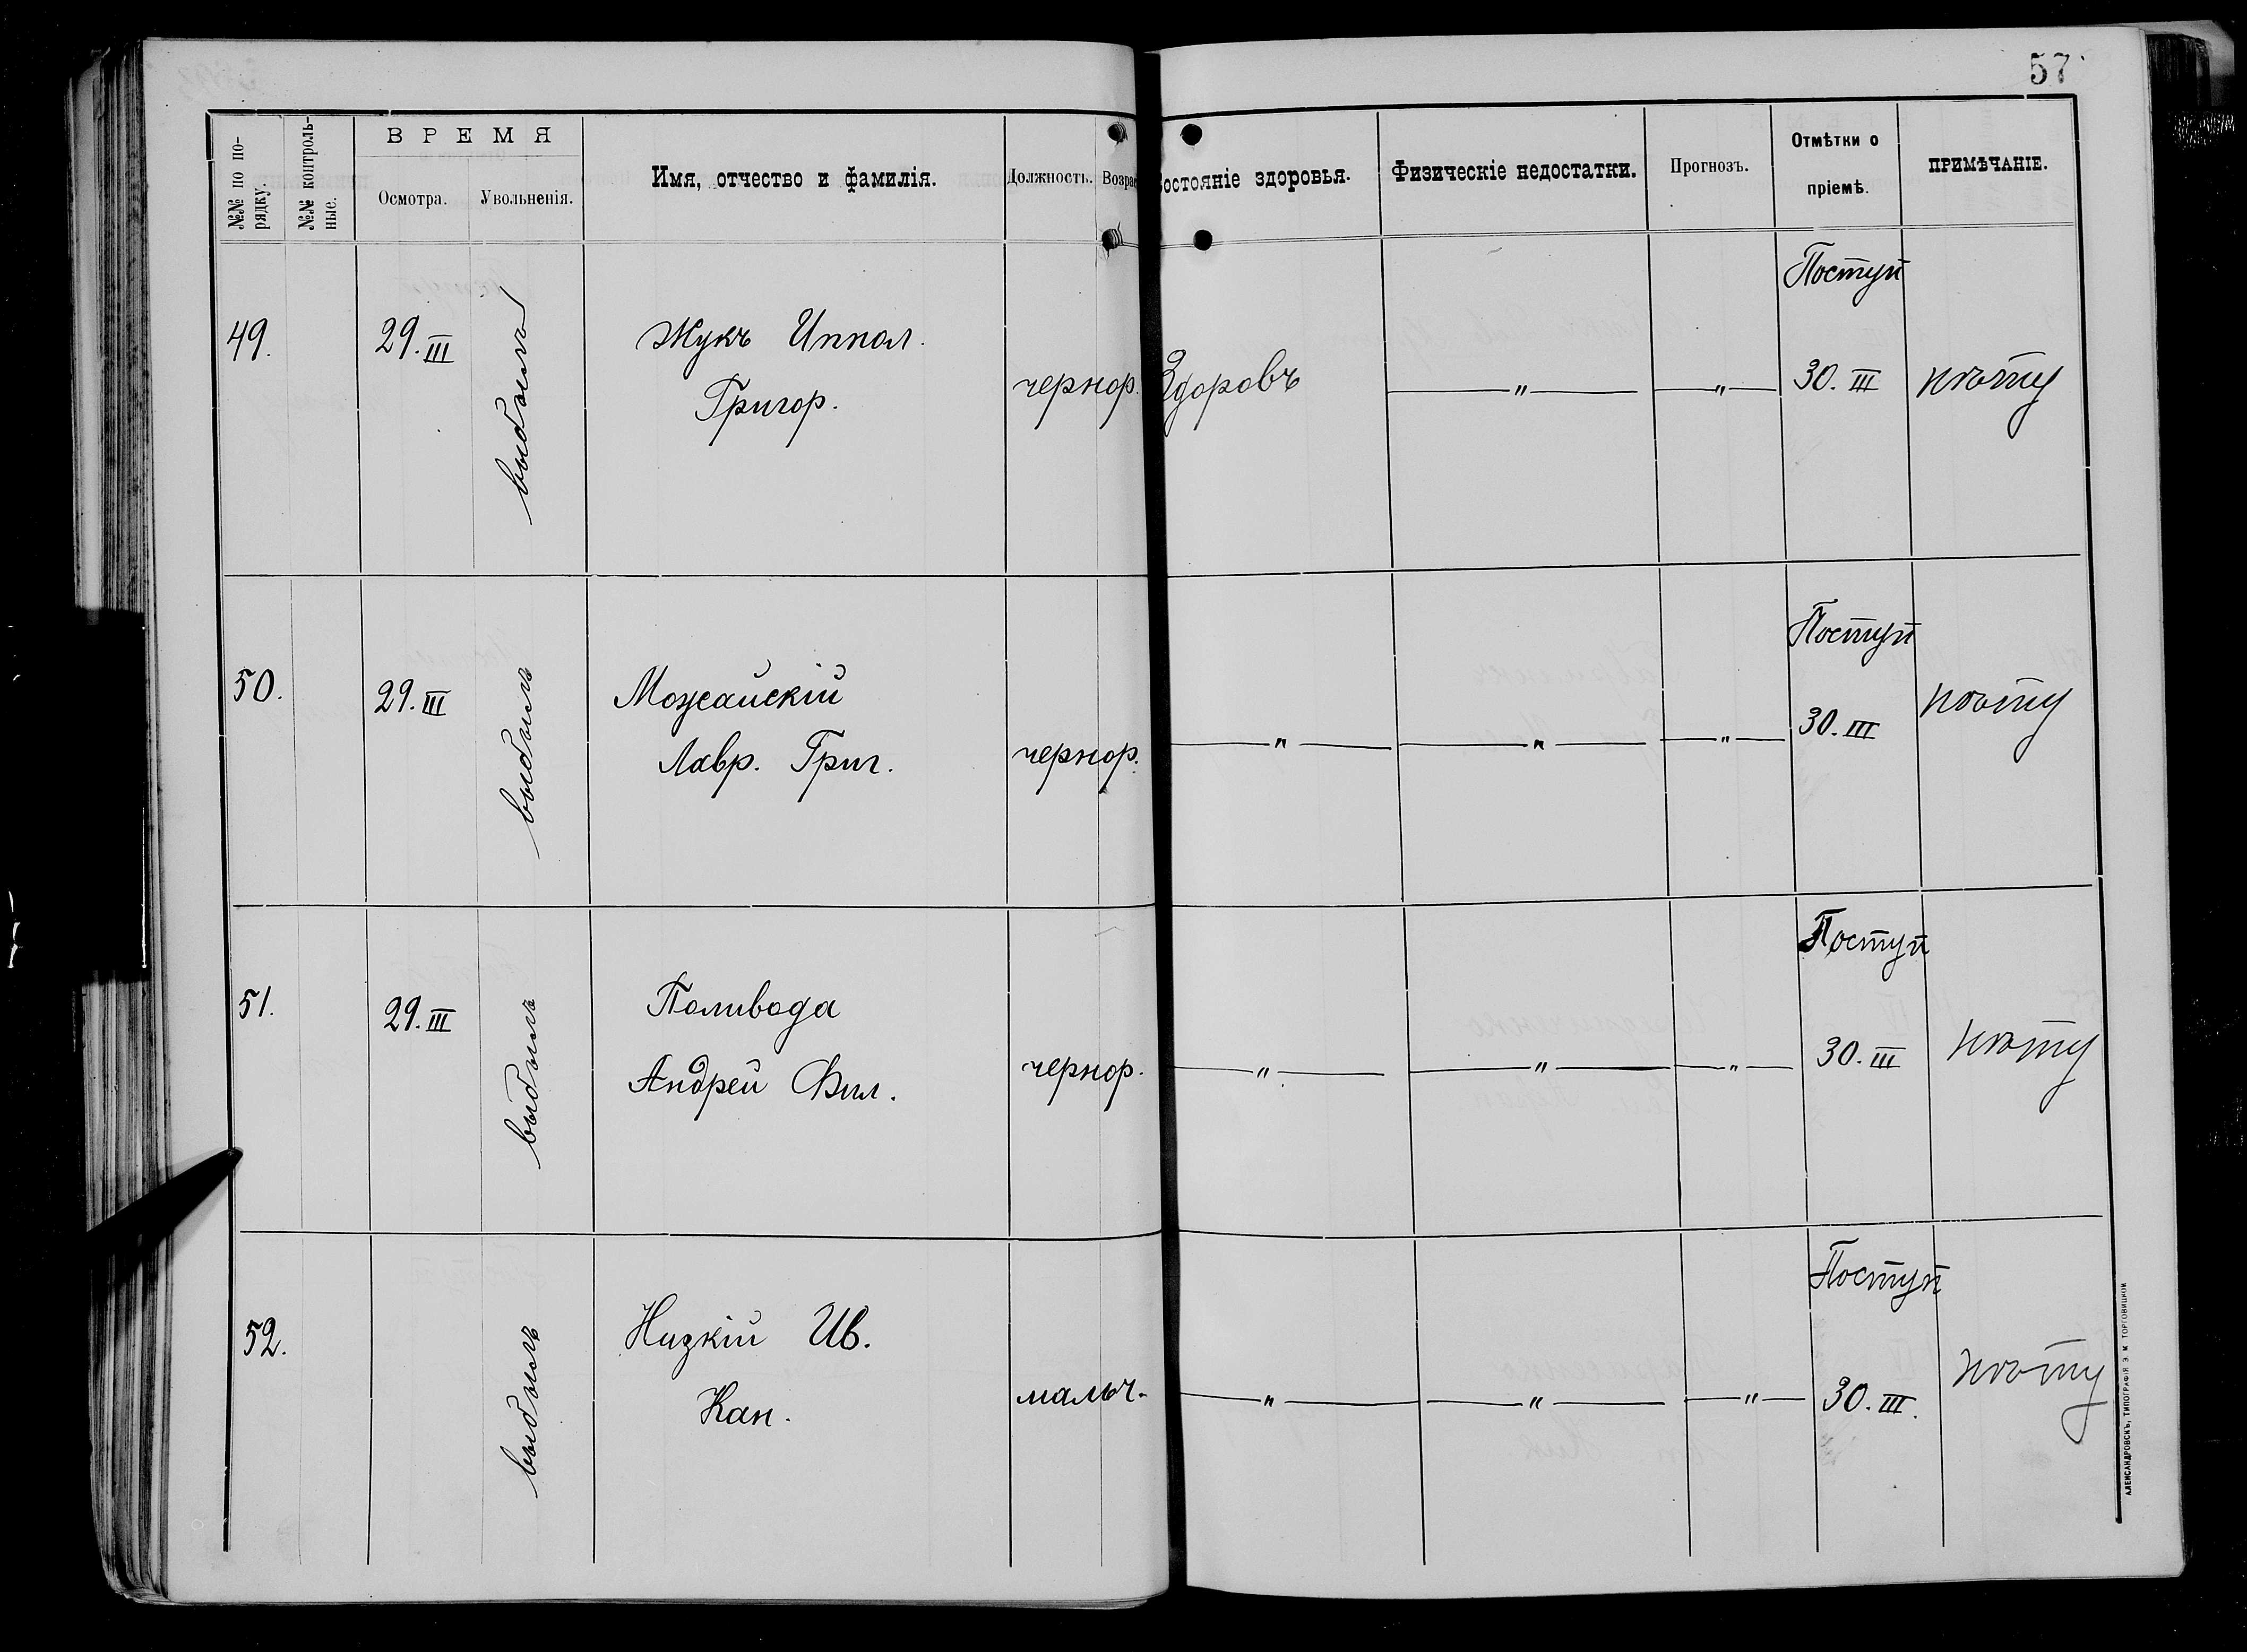 57
№№ по по-
рядку.
№№ контроль-
ные.
ВРЕМЯ
Осмотра.
Увольненія.
Имя, отчество и фамилія.
Должность.
Возрас
Состояніе здоровья.
Физическіе недостатки.
Прогнозъ.
Отмѣтки о
пріемѣ.
ПРИМѢЧАНІЕ.
49.
29.III
выбылъ
Жукъ Иппол.
Григор.
чернор.
Здоровъ
— " —
— " —
Поступ
30. III
нѣту
50.
29. III
выбылъ
Можайскій
Лавр. Григ.
чернор.
— " —
— " —
— " —
Поступ
30. III
нѣту
51.
29. III
выбылъ
Поливода
Андрей Фил.
чернор.
— " —
— " —
— " —
Поступ
30. III
нѣту
52.
выбылъ
Низкій Ив.
Кан.
мальч.
— " —
— " —
— " —
Поступ
30. III.
нѣту
АЛЕКСАНДРОВСКЪ, ТИПОГРАФІЯ Э. М. ТОРГОВИЦКОЙ